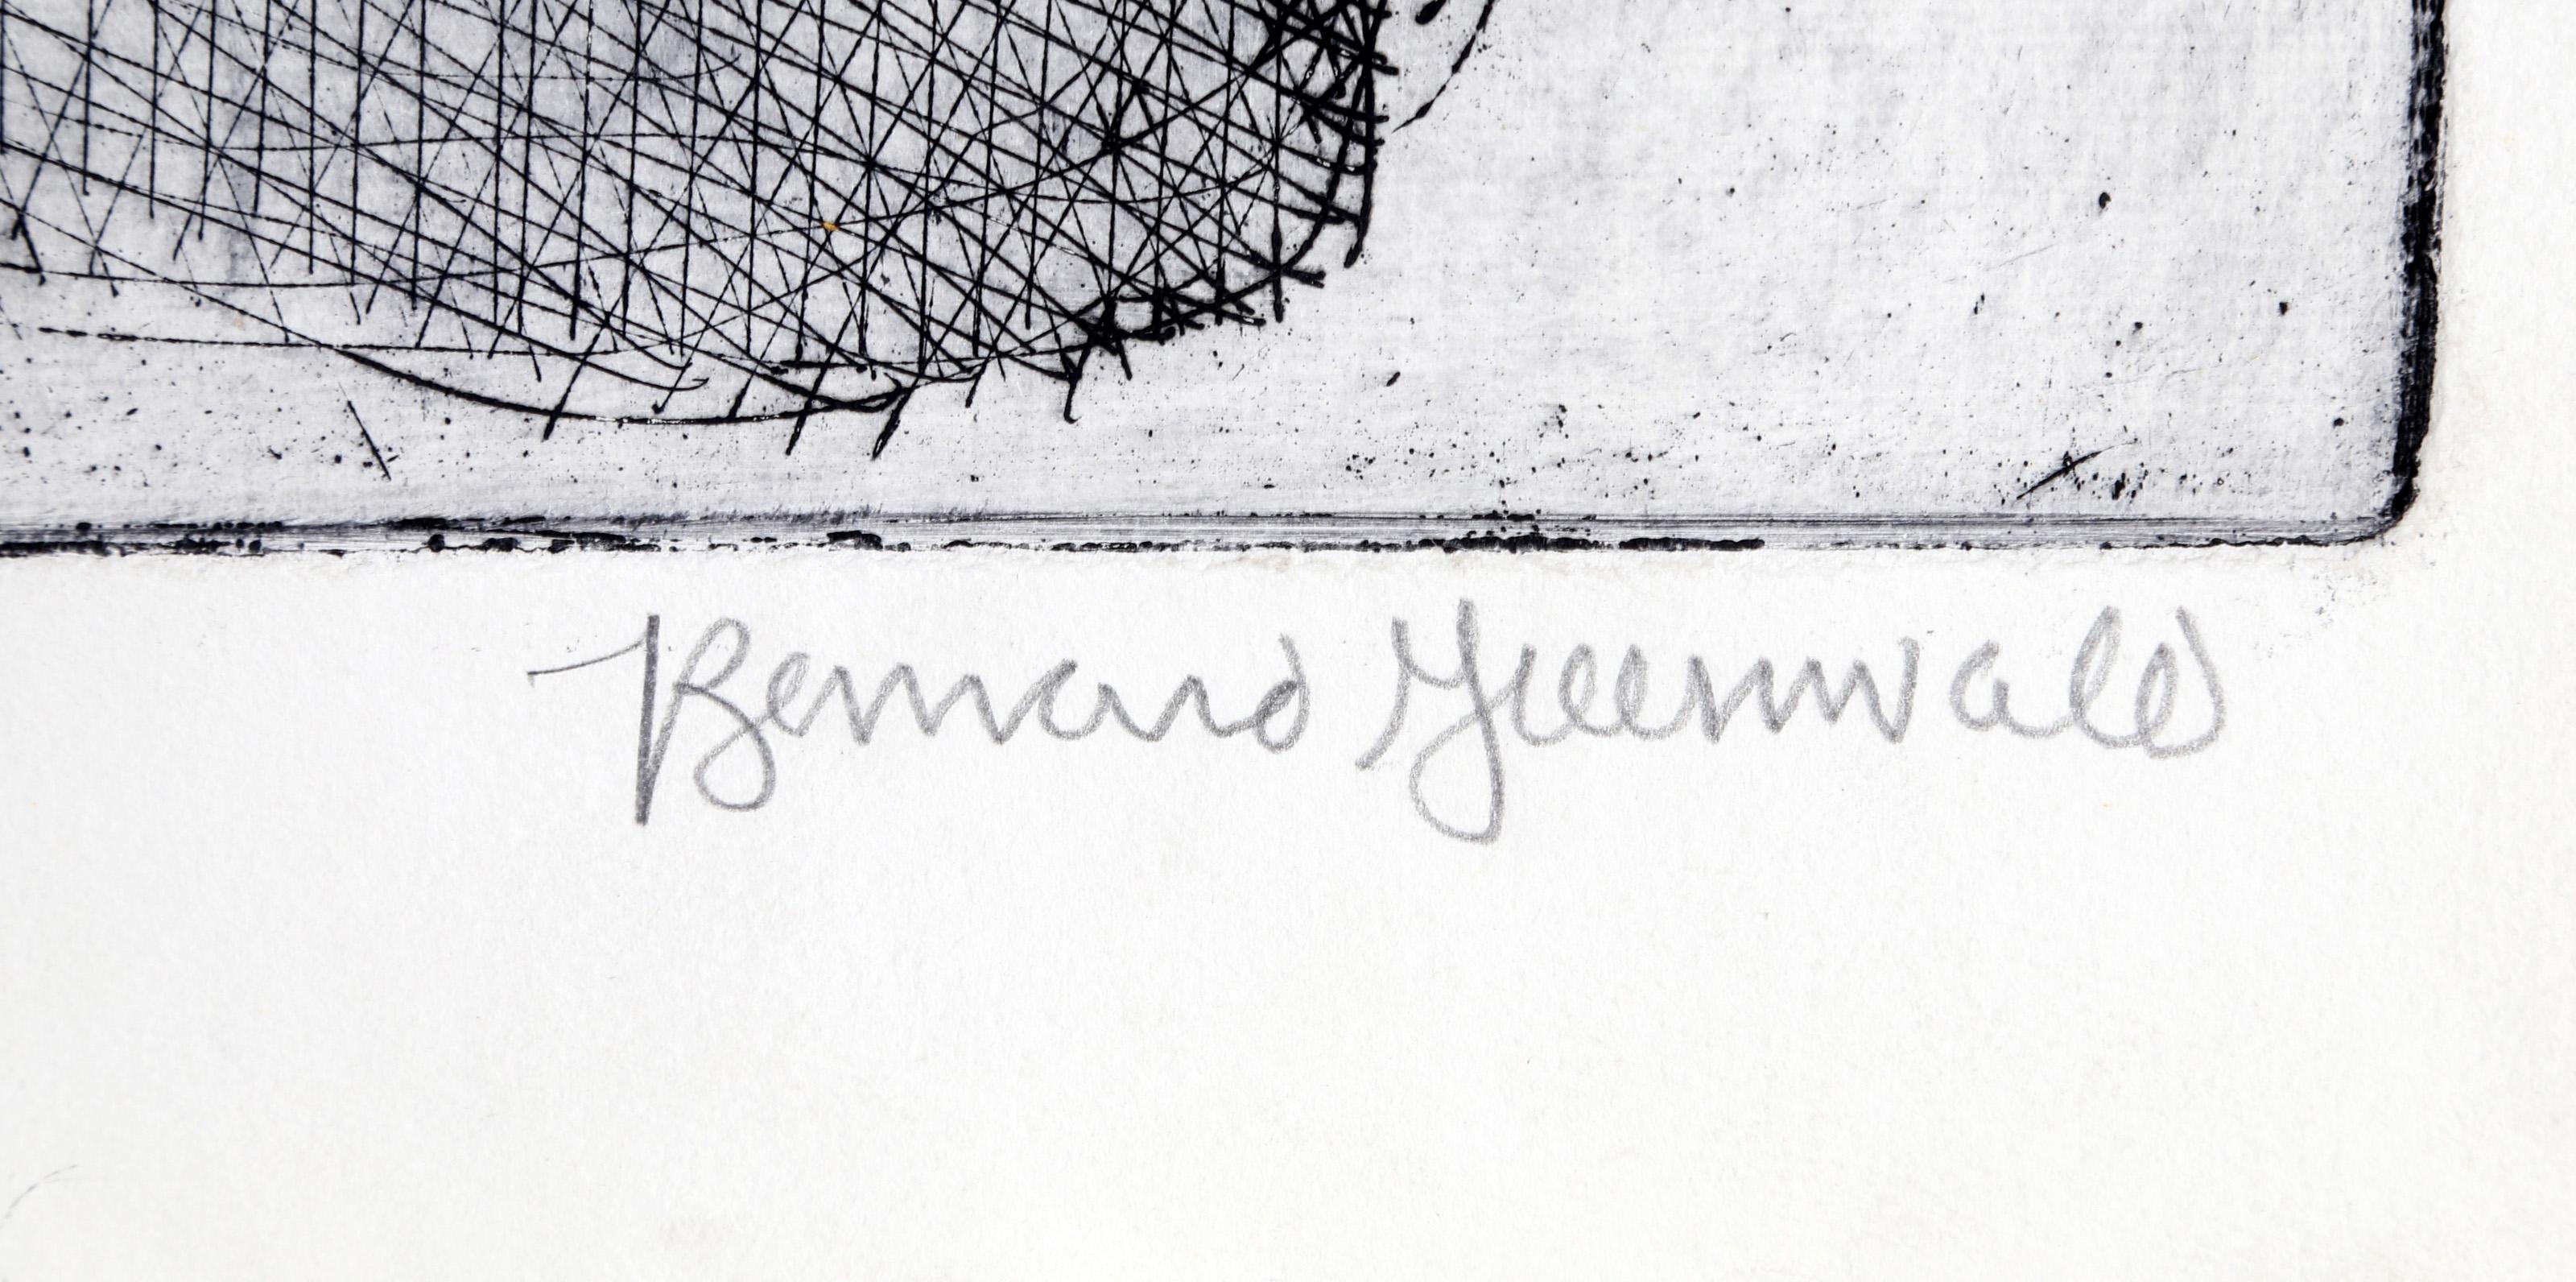 Bernard Greenwald